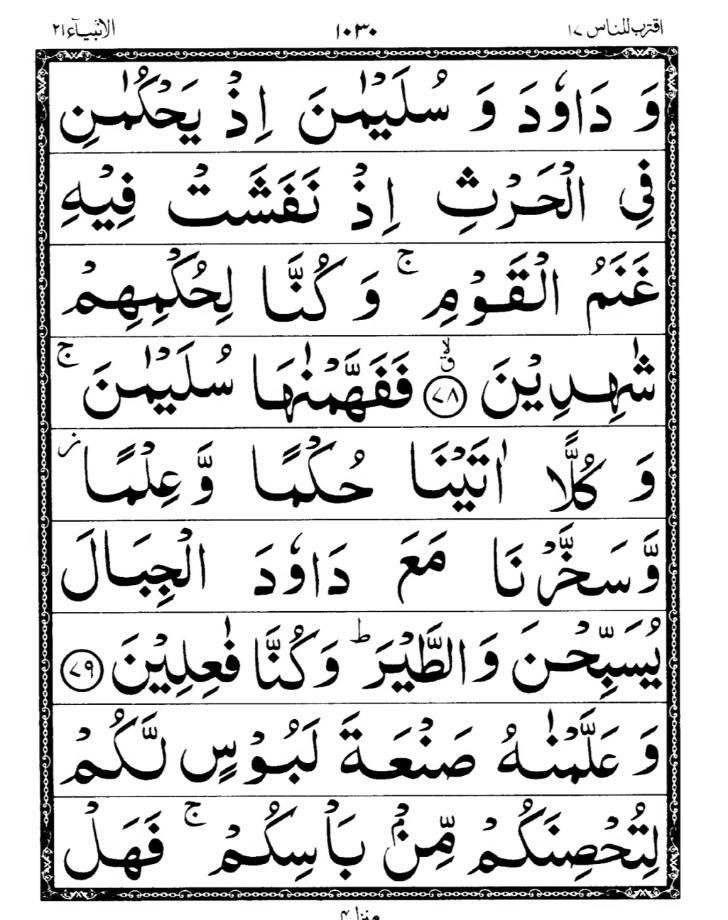 اقترب للناس ١٧ ١٠٣٠ الانبیآء ٢١
وَ دَاوٗدَ وَ سُلَیْمٰنَ اِذْ یَحْكُمٰنِ
فِی الْحَرْثِ اِذْ نَفَشَتْ فِیْهِ
غَنَمُ الْقَوْمِ ۚ وَ كُنَّا لِحُكْمِهِمْ
شٰهِدِیْنَ ﴿٧٨﴾ۙق فَفَهَّمْنٰهَا سُلَیْمٰنَ ۚ
وَ كُلًّا اٰتَیْنَا حُكْمًا وَّ عِلْمًا ز
وَّ سَخَّرْنَا مَعَ دَاوٗدَ الْجِبَالَ
یُسَبِّحْنَ وَ الطَّیْرَ ؕ وَ كُنَّا فٰعِلِیْنَ ﴿٧٩﴾
وَ عَلَّمْنٰهُ صَنْعَةَ لَبُوْسٍ لَّكُمْ
لِتُحْصِنَكُمْ مِّنْۢ بَاْسِكُمْ ۚ فَهَلْ
منزل ٤